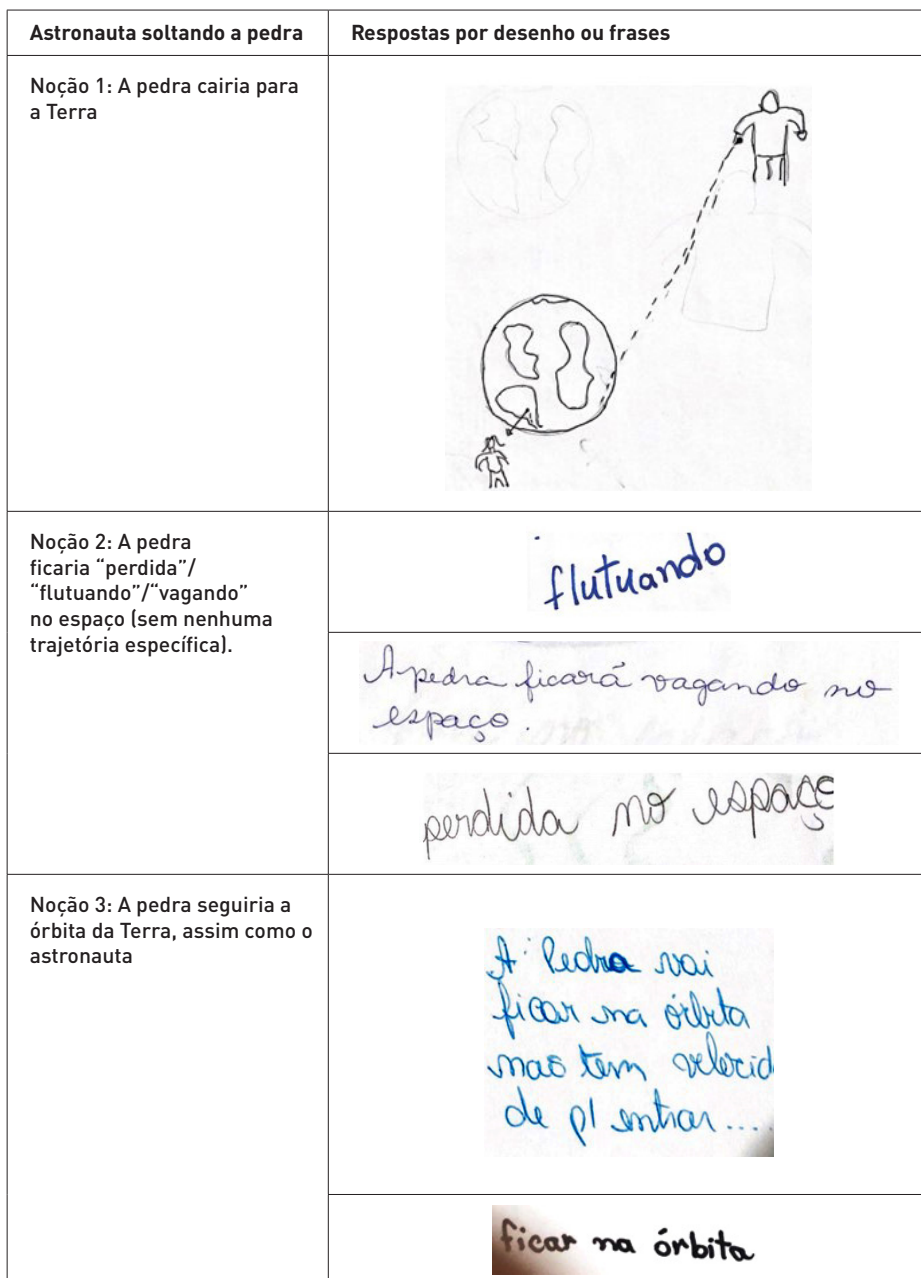 Astronauta soltando a pedra
Respostas por desenho ou frases
Noção 1: A pedra cairia para
a Terra
Noção 2: A pedra
ficaria “perdida”/
“flutuando”/“vagando”
no espaço (sem nenhuma
trajetória específica).
flutuando
A pedra ficará vagando no
espaço.
perdida no espaço
Noção 3: A pedra seguiria a
órbita da Terra, assim como o
astronauta
A Pedra vai
ficar na órbita
não tem velocid
de p/ entrar....
ficar na órbita